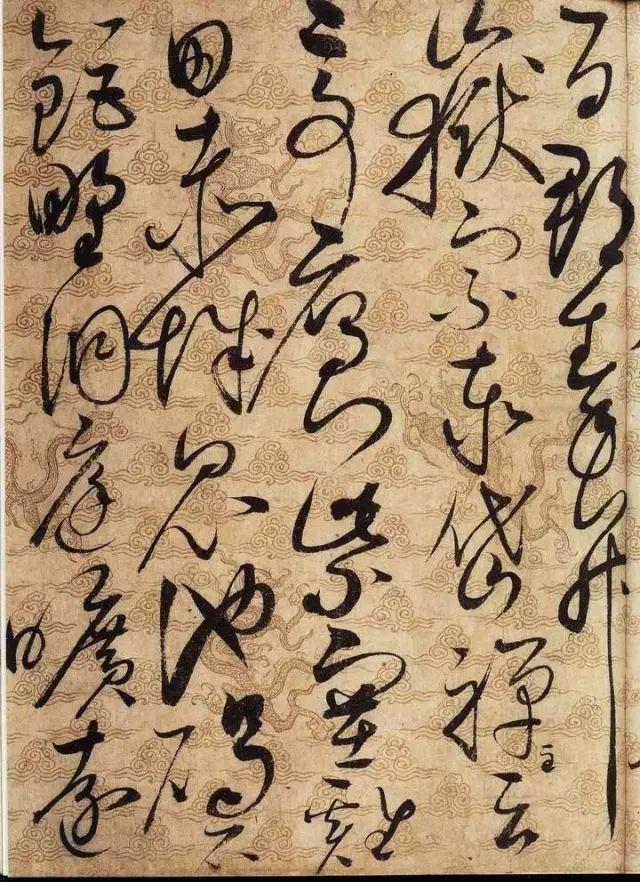 百郡秦并
嶽宗泰岱禪主云
亭雁門紫塞雞
田赤城昆池碣
鉅野洞庭曠遠